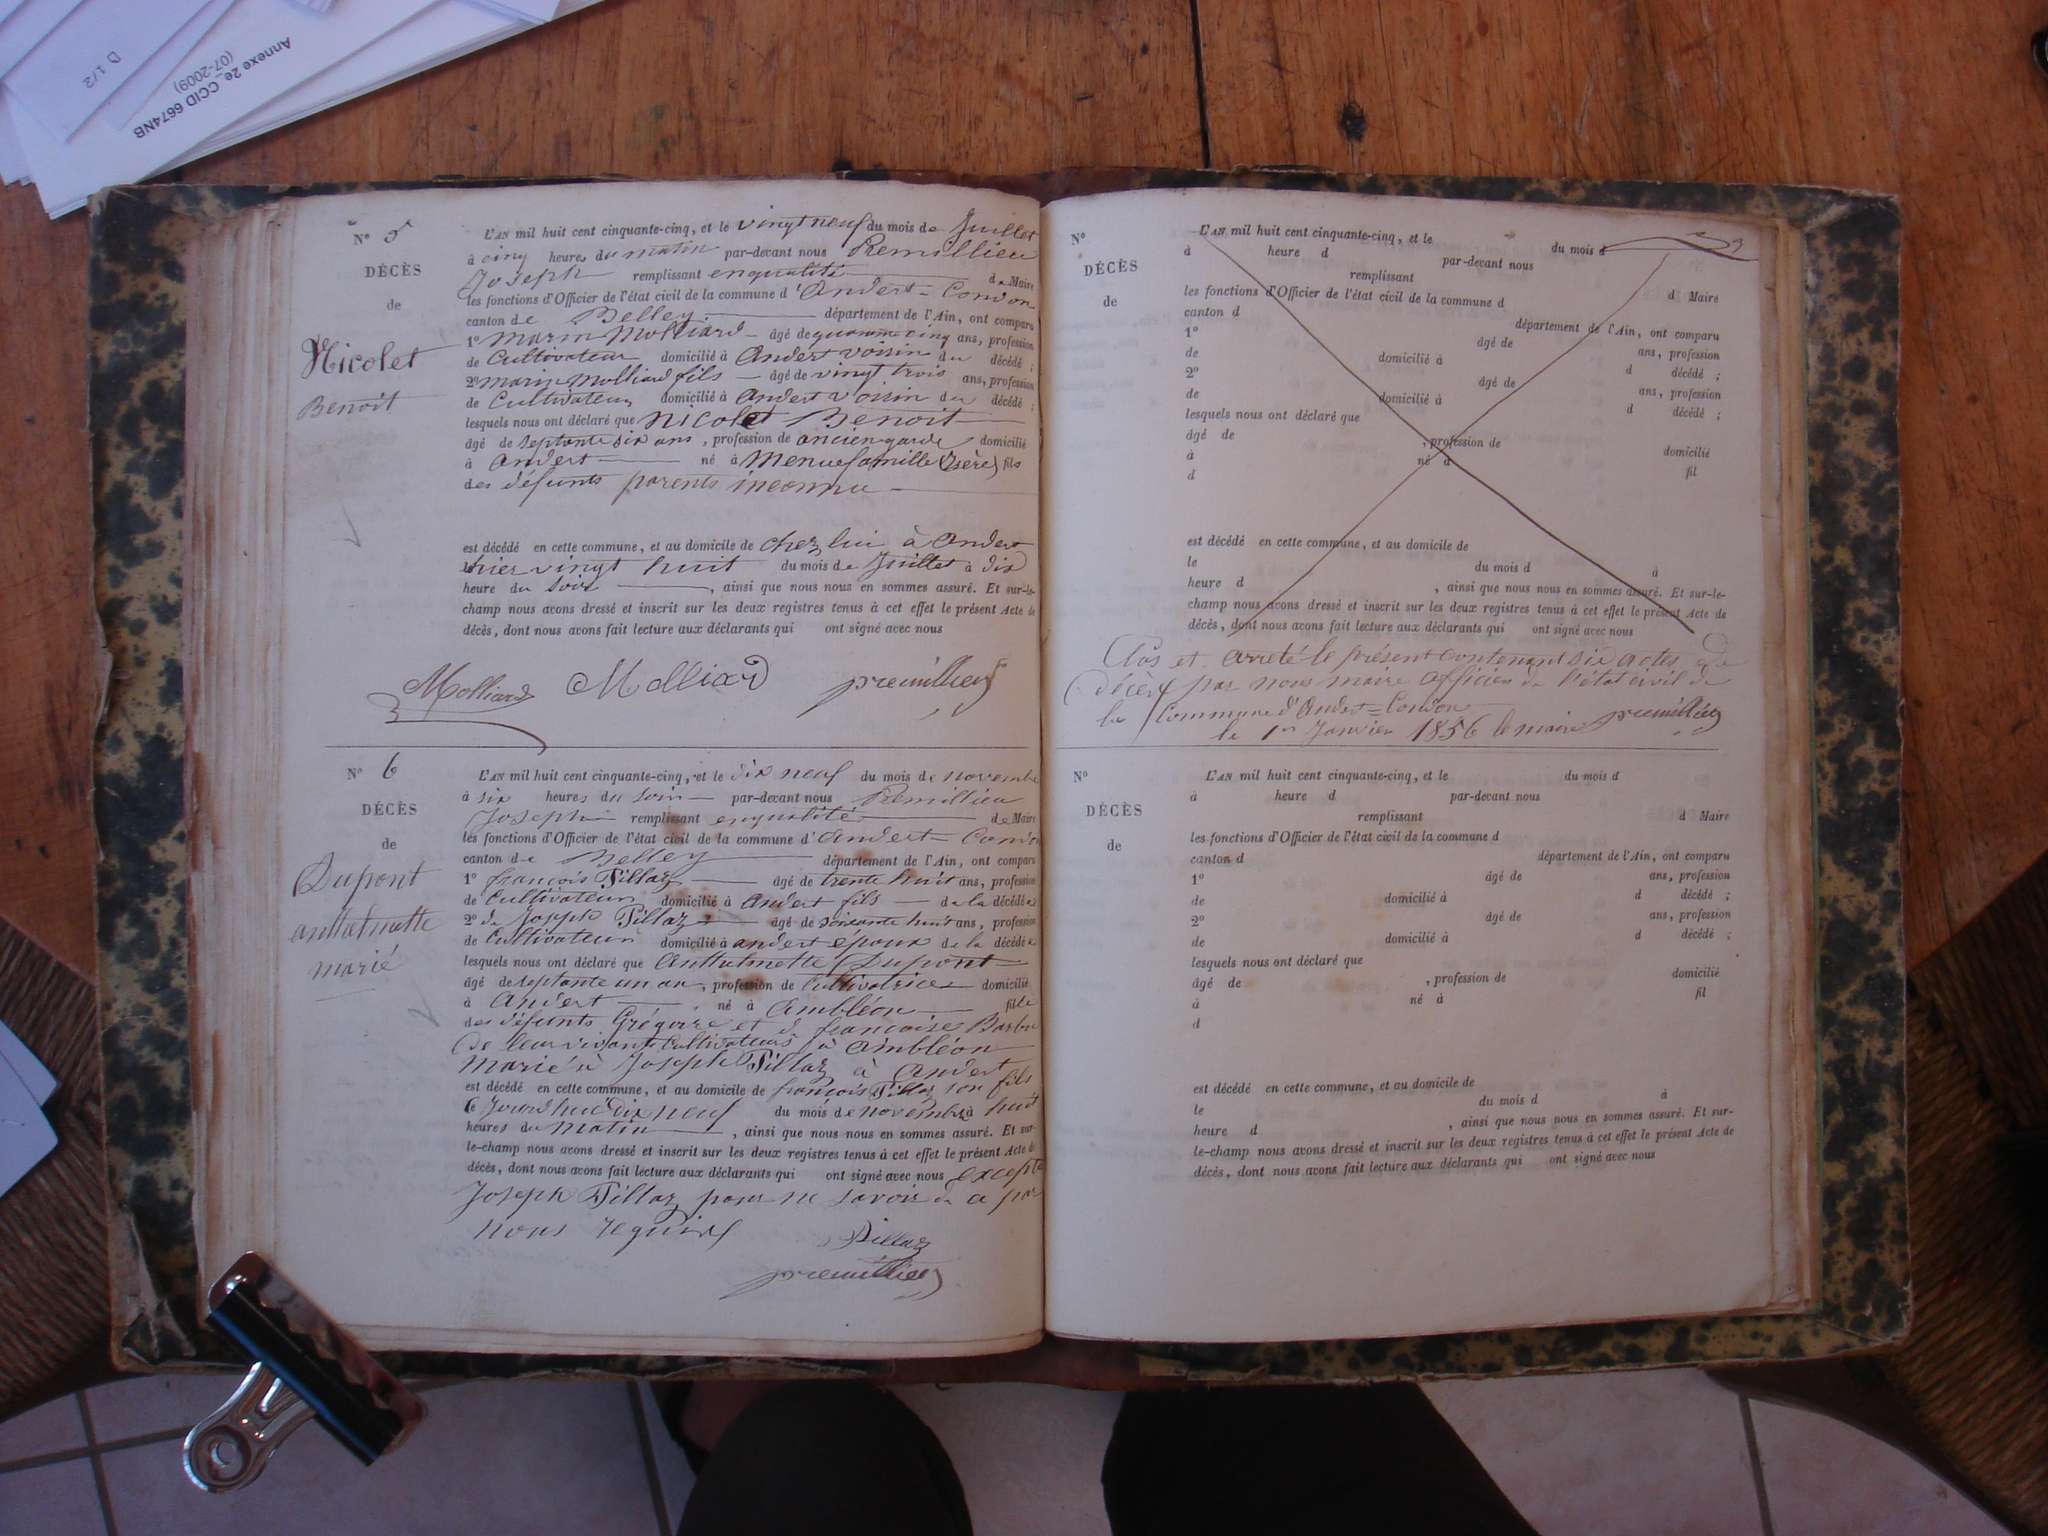 D 1/2
Annexe 2e_CCID 6674NB
(07-2009)
N° 5
DÉCÈS
de
Nicolet
Benoit
L'AN mil huit cent cinquante-cinq, et le vingt neuf du mois de Juillet
à cinq heures du matin par-devant nous Premillieu
Joseph remplissant enqualité de Maire
les fonctions d'Officier de l'état civil de la commune d'Andert-Condon
canton de Belley département de l'Ain, ont comparu
1° Marin Molliard âgé de quarante cinq ans, profession
de Cultivateur domicilié à Andert voisin du décédé ;
2° marin Molliard fils âgé de vingt trois ans, profession
de Cultivateur domicilié à Andert voisin du décédé ;
lesquels nous ont déclaré que Nicolet Benoit
âgé de septante six ans, profession de ancien garde domicilié
à Andert né à Menuefamille (Isère) fils
des défunts parents inconnu
est décédé en cette commune, et au domicile de chez lui à Andert
hier vingt huit du mois de Juillet à dix
heure du soir, ainsi que nous nous en sommes assuré. Et sur-le-
champ nous avons dressé et inscrit sur les deux registres tenus à cet effet le présent Acte de
décès, dont nous avons fait lecture aux déclarants qui ont signé avec nous
Molliard Molliard premillieu
N° 6
DÉCÈS
de
Dupont
anthelmette
marié
L'AN mil huit cent cinquante-cinq, et le dix neuf du mois de novembre
à six heures du soir par-devant nous Premillieu
Joseph remplissant enqualité de Maire
les fonctions d'Officier de l'état civil de la commune d'Andert-Condon
canton de Belley département de l'Ain, ont comparu
1° françois Pillaz âgé de trente huit ans, profession
de Cultivateur domicilié à Andert fils de la décédée
2° de Joseph Pillaz âgé de soixante huit ans, profession
de Cultivateur domicilié à andert époux de la décédée
lesquels nous ont déclaré que Anthelmette Dupont
âgé de septante un an, profession de Cultivatrice domicilié
à Andert né à Ambléon fille
des défunts Grégoire et d françoise Barbu
de leur vivant Cultivateurs à Ambléon
Marié à Joseph Pillaz à Andert
est décédé en cette commune, et au domicile de françois Pillaz son fils
le Jourd'hui dix neuf du mois de novembre à huit
heures du Matin, ainsi que nous nous en sommes assuré. Et sur-
le-champ nous avons dressé et inscrit sur les deux registres tenus à cet effet le présent Acte de
décès, dont nous avons fait lecture aux déclarants qui ont signé avec nous excepté
Joseph Pillaz pour ne savoir de ce par
nous requis
Pillaz
premillieu
N°
DÉCÈS
de
L'AN mil huit cent cinquante-cinq, et le du mois d
à heure d par-devant nous
remplissant d Maire
les fonctions d'Officier de l'état civil de la commune d
canton d département de l'Ain, ont comparu
1° âgé de ans, profession
de domicilié à d décédé ;
2° âgé de ans, profession
de domicilié à d décédé ;
lesquels nous ont déclaré que
âgé de , profession de domicilié
à né à fil
d
est décédé en cette commune, et au domicile de
le du mois d à
heure d , ainsi que nous nous en sommes assuré. Et sur-le-
champ nous avons dressé et inscrit sur les deux registres tenus à cet effet le présent Acte de
décès, dont nous avons fait lecture aux déclarants qui ont signé avec nous
Clos et arreté le présent contenant six actes de
décès par nous maire officier de l'état civil de
la Commune d'Andert-Condon
le 1er Janvier 1856 le maire premillieu
N°
DÉCÈS
de
L'AN mil huit cent cinquante-cinq, et le du mois d
à heure d par-devant nous
remplissant d Maire
les fonctions d'Officier de l'état civil de la commune d
canton d département de l'Ain, ont comparu
1° âgé de ans, profession
de domicilié à d décédé ;
2° âgé de ans, profession
de domicilié à d décédé ;
lesquels nous ont déclaré que
âgé de , profession de domicilié
à né à fil
d
est décédé en cette commune, et au domicile de
le du mois d à
heure d , ainsi que nous nous en sommes assuré. Et sur-
le-champ nous avons dressé et inscrit sur les deux registres tenus à cet effet le présent Acte de
décès, dont nous avons fait lecture aux déclarants qui ont signé avec nous